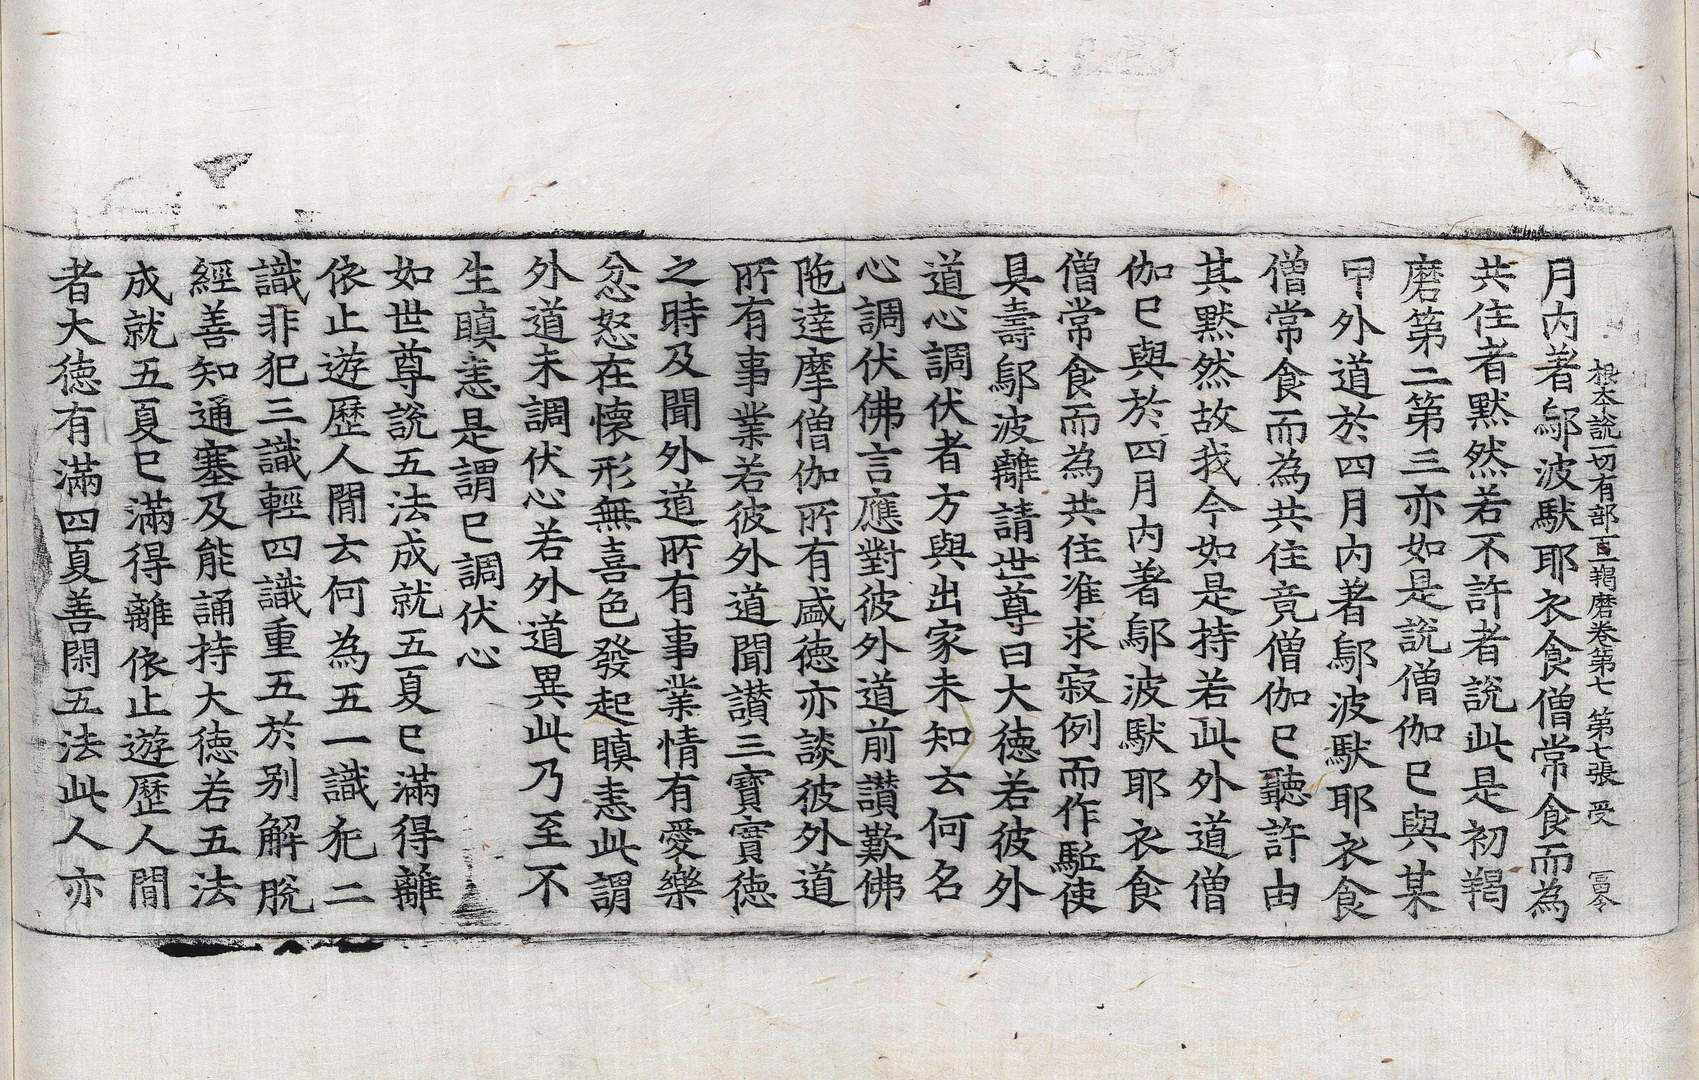 根本說一切有部百一羯磨卷第七 第七張 受 冨令
月內著鄔波馱耶衣食僧常食而為
共住者黙然若不許者說此是初羯
磨第二第三亦如是說僧伽已與某
甲外道於四月內著鄔波馱耶衣食
僧常食而為共住竟僧伽已聽許由
其黙然故我今如是持若此外道僧
伽已與於四月內著鄔波馱耶衣食
僧常食而為共住准求寂例而作驅使
具壽鄔波離請世尊曰大德若彼外
道心調伏者方與出家未知云何名
心調伏佛言應對彼外道前讃歎佛
陁達摩僧伽所有盛德亦談彼外道
所有事業若彼外道聞讃三寶實德
之時及聞外道所有事業情有愛樂
忿怒在懷形無喜色發起瞋恚此謂
外道未調伏心若外道異此乃至不
生瞋恚是謂已調伏心
如世尊說五法成就五夏已滿得離
依止遊歷人閒云何為五一識犯二
識非犯三識輕四識重五於別解脫
經善知通塞及能誦持大德若五法
成就五夏已滿得離依止遊歷人閒
者大德有滿四夏善閑五法此人亦